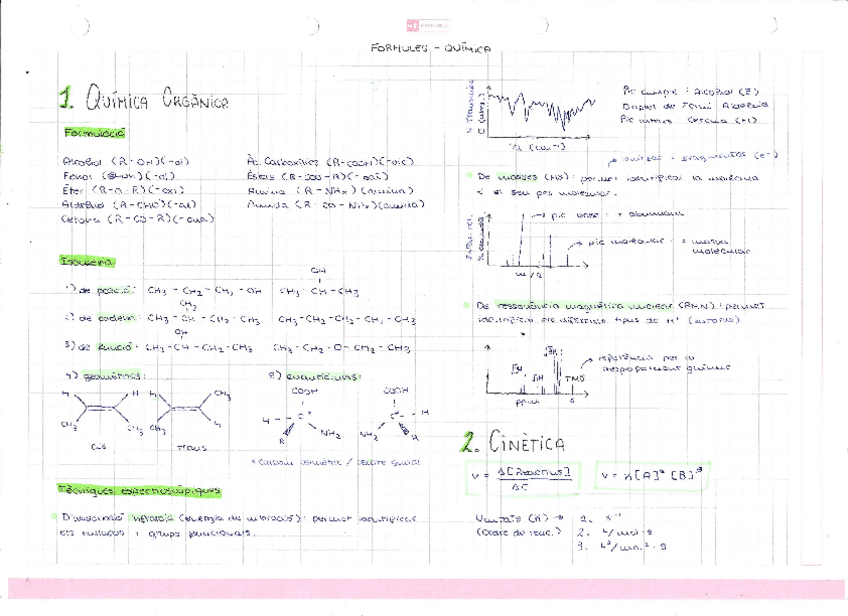 FORMULES - QUÍMICA
1. QUÍMICA ORGÀNICA
Formulació
Alcohol (R-OH)(-ol)
Fenol (-ol)
Èter (R-O-R)(-oxi)
Aldehid (R-CHO)(-al)
Cetona (R-CO-R)(-ona)
Àc. Carboxílics (R-COOH)(-oic)
Èsters (R-COO-R)(-oat)
Amina (R-NHx)(amina)
Amida (R-CO-NHx)(amida)
Isomeria
OH
1) de posició: CH3 - CH2 - CH2 - OH CH3 - CH - CH3
CH3
2) de cadena: CH3 - CH - CH2 - CH3 CH3 - CH2 - CH2 - CH2 - CH3
OH
3) de funció: CH3 - CH - CH2 - CH3 CH3 - CH2 - O - CH2 - CH3
4) geomètrics:
H H H CH3
CH3 CH3 CH3 H
Cis Trans
5) enantiòmers:
COOH COOH
H - C* C* - H
R NH2 NH2 R
* Carboni asimètric / Centre quiral
Tècniques espectroscòpiques
D'infraroja (energia de vibració): permet identificar
els enllaços i grups funcionals.
% Transmitància
1/λ (cm-1)
Pic ample: Alcohol (E)
Pic intens: Cetona (M)
ionitzar i fragmentar (e-)
De masses (MS): permet identificar la molècula
i el seu pes molecular.
pic base: + abundant
pic molecular: = massa
molecular
m/z
De ressonància magnètica nuclear (RMN): permet
identificar els diferents tipus de H+ (entorns)
referència per al
desplaçament químic
TMS
ppm
2. CINÈTICA
v = Δ[Reactius] / Δt
v = k[A]α [B]β
Unitats (k) → 1. s-1
(Ordre de reac.) 2. L/mol·s
3. L2/mol2·s